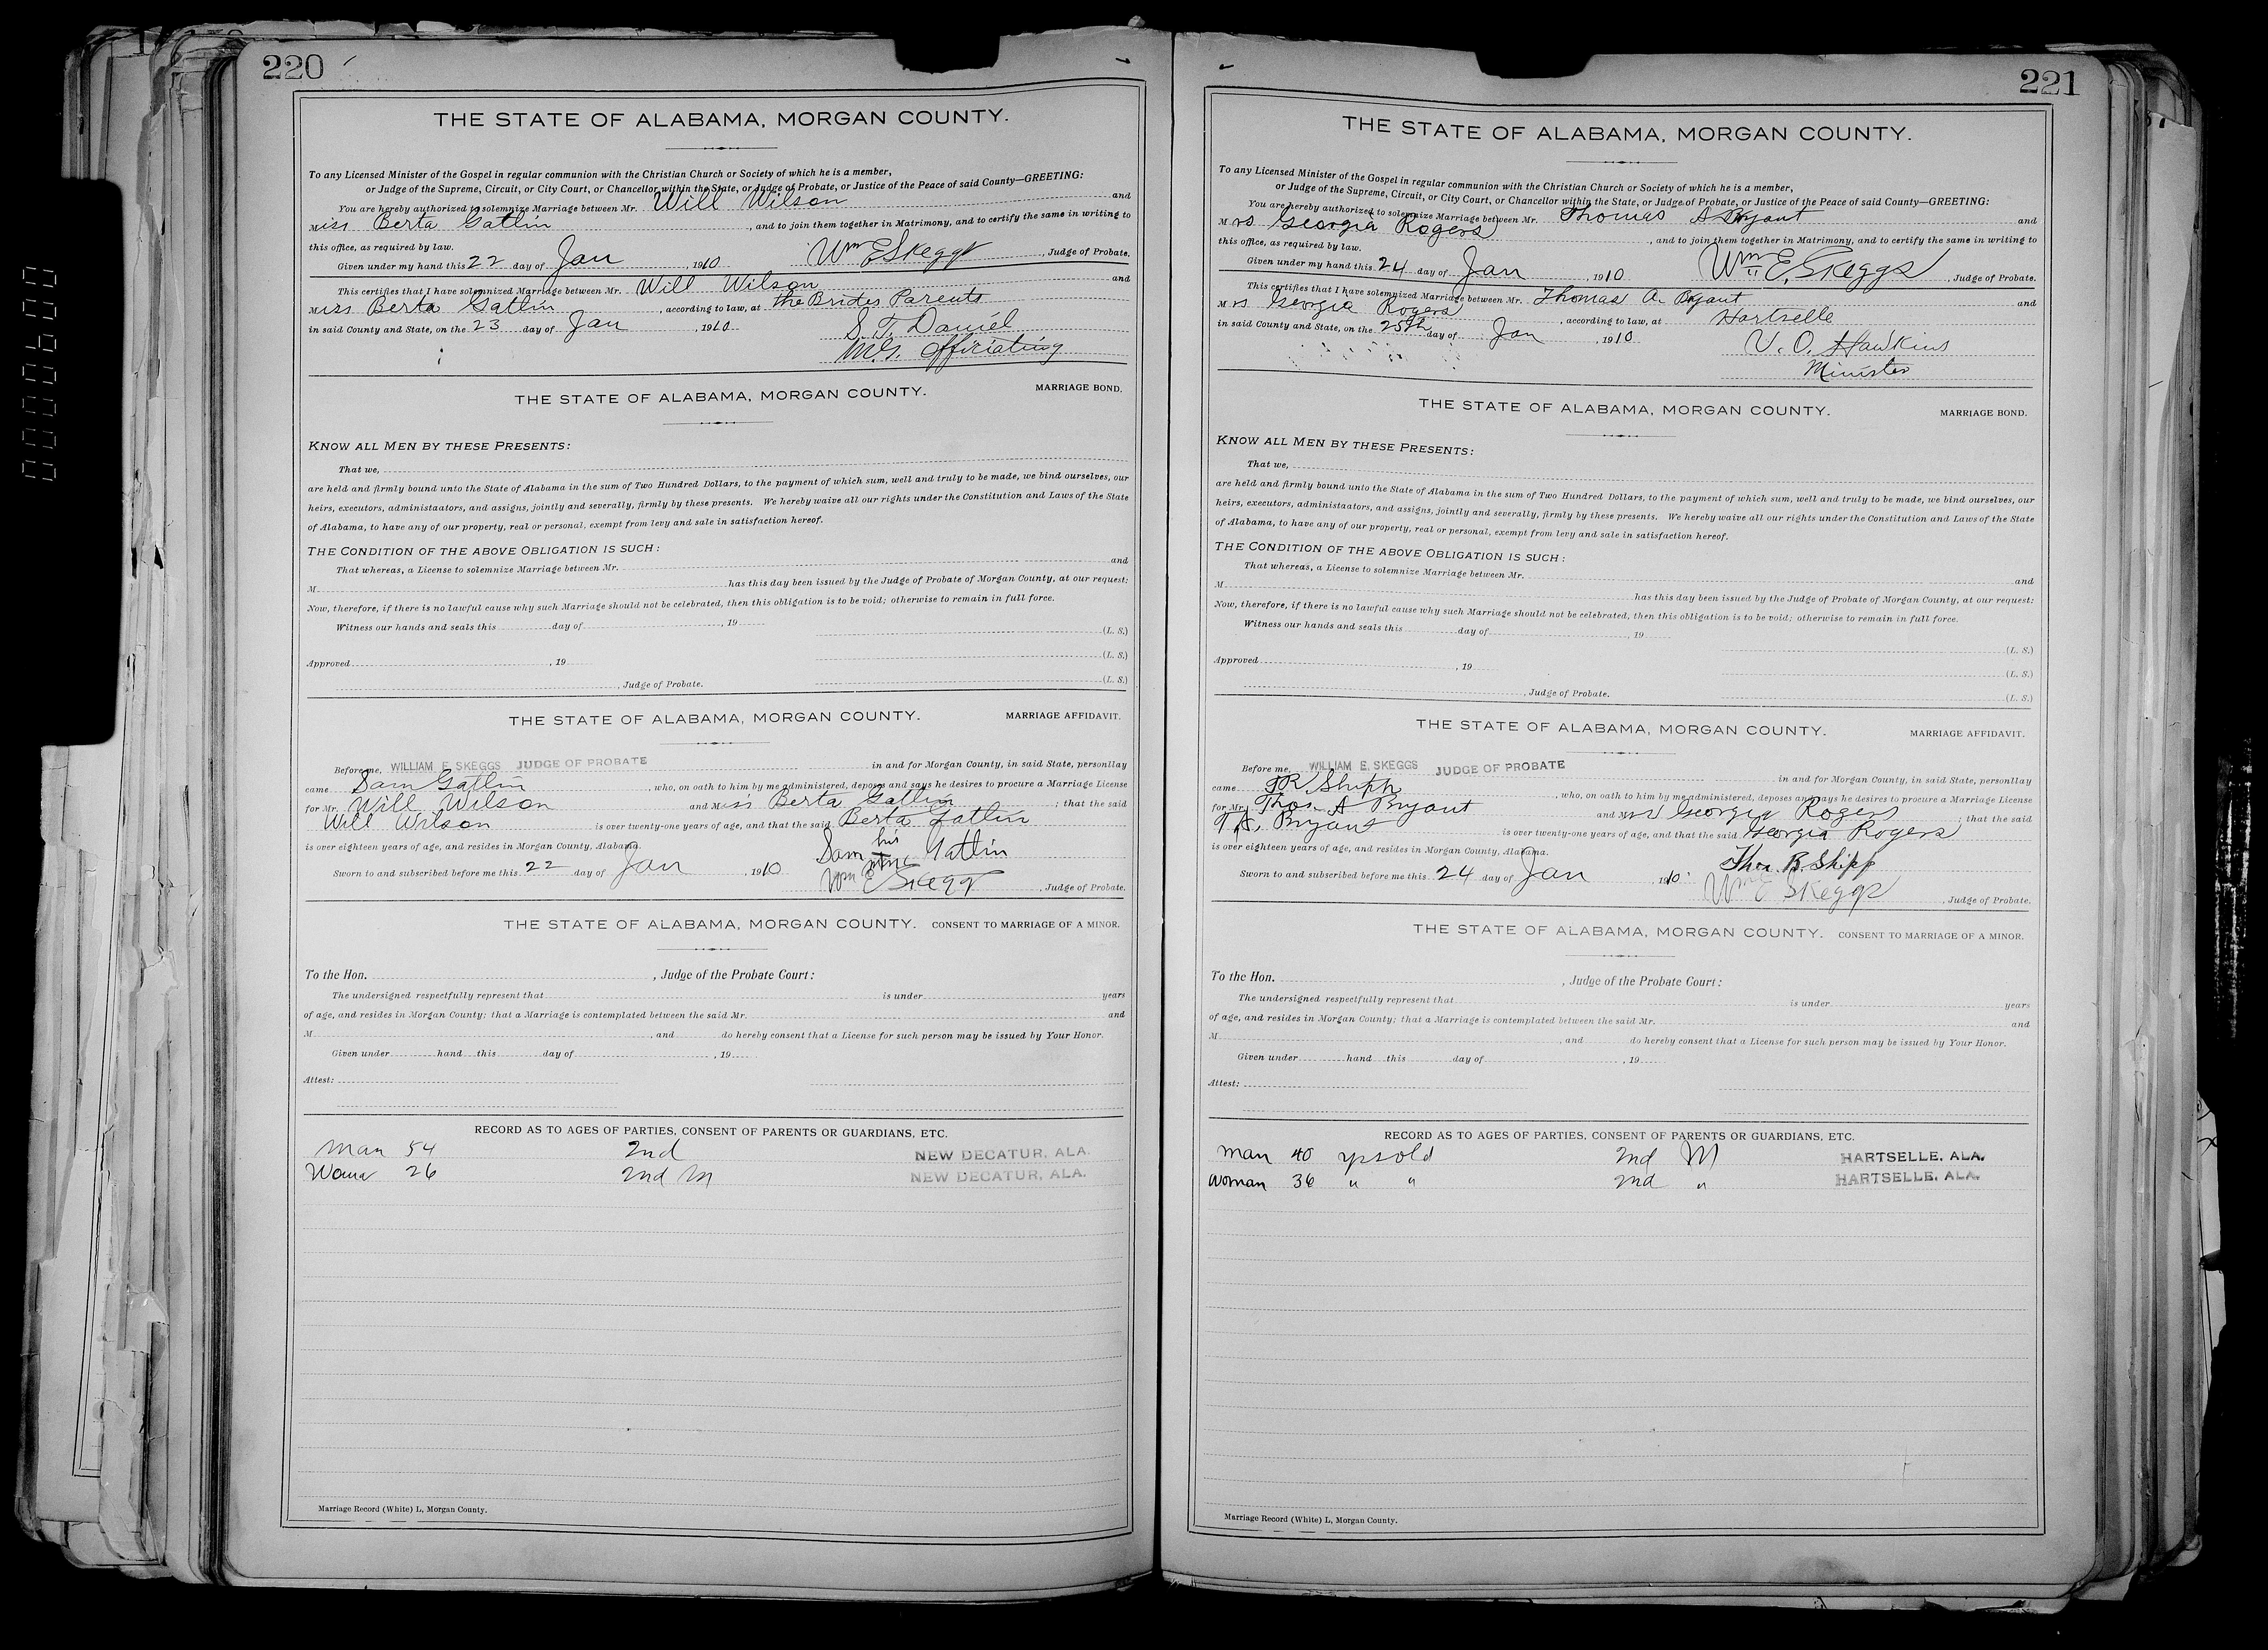 220
THE STATE OF ALABAMA, MORGAN COUNTY.
To any Licensed Minister of the Gospel in regular communion with the Christian Church or Society of which he is a member,
or Judge of the Supreme, Circuit, or City Court, or Chancellor within the State, or Judge of Probate, or Justice of the Peace of said County—GREETING:
You are hereby authorized to solemnize Marriage between Mr. Will Wilson and
Miss Berta Gatlin, and to join them together in Matrimony, and to certify the same in writing to
this office, as required by law.
Given under my hand this 22 day of Jan, 1910 Wm E Skeggs, Judge of Probate.
This certifies that I have solemnized Marriage between Mr. Will Wilson and
Miss Berta Gatlin, according to law, at the Brides Parents
in said County and State, on the 23 day of Jan, 1910 S. T. Daniel
M.G. Officiating
THE STATE OF ALABAMA, MORGAN COUNTY. MARRIAGE BOND.
KNOW ALL MEN BY THESE PRESENTS:
That we,
are held and firmly bound unto the State of Alabama in the sum of Two Hundred Dollars, to the payment of which sum, well and truly to be made, we bind ourselves, our
heirs, executors, administaators, and assigns, jointly and severally, firmly by these presents. We hereby waive all our rights under the Constitution and Laws of the State
of Alabama, to have any of our property, real or personal, exempt from levy and sale in satisfaction hereof.
THE CONDITION OF THE ABOVE OBLIGATION IS SUCH:
That whereas, a License to solemnize Marriage between Mr. and
M has this day been issued by the Judge of Probate of Morgan County, at our request:
Now, therefore, if there is no lawful cause why such Marriage should not be celebrated, then this obligation is to be void; otherwise to remain in full force.
Witness our hands and seals this day of, 19
(L. S.)
(L. S.)
Approved, 19
(L. S.)
, Judge of Probate.
THE STATE OF ALABAMA, MORGAN COUNTY. MARRIAGE AFFIDAVIT.
Before me, WILLIAM E. SKEGGS JUDGE OF PROBATE in and for Morgan County, in said State, personllay
came Sam Gatlin, who, on oath to him by me administered, deposes and says he desires to procure a Marriage License
for Mr. Will Wilson and Miss Berta Gatlin; that the said
Will Wilson is over twenty-one years of age, and that the said Berta Gatlin
is over eighteen years of age, and resides in Morgan County, Alabama.
his
Sam Gatlin
mark
Sworn to and subscribed before me this 22 day of Jan, 1910 Wm E Skeggs, Judge of Probate.
THE STATE OF ALABAMA, MORGAN COUNTY. CONSENT TO MARRIAGE OF A MINOR.
To the Hon., Judge of the Probate Court:
The undersigned respectfully represent that is under years
of age, and resides in Morgan County; that a Marriage is contemplated between the said Mr. and
M, and do hereby consent that a License for such person may be issued by Your Honor.
Given under hand this day of, 19
Attest:
RECORD AS TO AGES OF PARTIES, CONSENT OF PARENTS OR GUARDIANS, ETC.
Man 54 2nd NEW DECATUR, ALA.
Woman 26 2nd M NEW DECATUR, ALA.
Marriage Record (White) L, Morgan County.
221
THE STATE OF ALABAMA, MORGAN COUNTY.
To any Licensed Minister of the Gospel in regular communion with the Christian Church or Society of which he is a member,
or Judge of the Supreme, Circuit, or City Court, or Chancellor within the State, or Judge of Probate, or Justice of the Peace of said County—GREETING:
You are hereby authorized to solemnize Marriage between Mr. Thomas A Bryant and
Mrs Georgia Rogers, and to join them together in Matrimony, and to certify the same in writing to
this office, as required by law.
Given under my hand this 24 day of Jan, 1910 Wm E. Skeggs, Judge of Probate.
This certifies that I have solemnized Marriage between Mr. Thomas A. Bryant and
Mrs Georgia Rogers, according to law, at Hartselle
in said County and State, on the 25th day of Jan, 1910 V. O. Hawkins
Minister
THE STATE OF ALABAMA, MORGAN COUNTY. MARRIAGE BOND.
KNOW ALL MEN BY THESE PRESENTS:
That we,
are held and firmly bound unto the State of Alabama in the sum of Two Hundred Dollars, to the payment of which sum, well and truly to be made, we bind ourselves, our
heirs, executors, administaators, and assigns, jointly and severally, firmly by these presents. We hereby waive all our rights under the Constitution and Laws of the State
of Alabama, to have any of our property, real or personal, exempt from levy and sale in satisfaction hereof.
THE CONDITION OF THE ABOVE OBLIGATION IS SUCH:
That whereas, a License to solemnize Marriage between Mr. and
M has this day been issued by the Judge of Probate of Morgan County, at our request:
Now, therefore, if there is no lawful cause why such Marriage should not be celebrated, then this obligation is to be void; otherwise to remain in full force.
Witness our hands and seals this day of, 19
(L. S.)
Approved, 19
(L. S.)
, Judge of Probate.
(L. S.)
THE STATE OF ALABAMA, MORGAN COUNTY. MARRIAGE AFFIDAVIT.
Before me, WILLIAM E. SKEGGS JUDGE OF PROBATE in and for Morgan County, in said State, personllay
came T R Shipp, who, on oath to him by me administered, deposes and says he desires to procure a Marriage License
for Mr. Thos. A Bryant and Mrs Georgia Rogers; that the said
T. A. Bryant is over twenty-one years of age, and that the said Georgia Rogers
is over eighteen years of age, and resides in Morgan County, Alabama.
Thos. R. Shipp
Sworn to and subscribed before me this 24 day of Jan 1910. Wm E Skeggs, Judge of Probate.
THE STATE OF ALABAMA, MORGAN COUNTY. CONSENT TO MARRIAGE OF A MINOR.
To the Hon., Judge of the Probate Court:
The undersigned respectfully represent that is under years
of age, and resides in Morgan County; that a Marriage is contemplated between the said Mr. and
M, and do hereby consent that a License for such person may be issued by Your Honor.
Given under hand this day of, 19
Attest:
RECORD AS TO AGES OF PARTIES, CONSENT OF PARENTS OR GUARDIANS, ETC.
Man 40 yrs old 2nd M HARTSELLE, ALA.
Woman 36 " " 2nd " HARTSELLE, ALA.
Marriage Record (White) L, Morgan County.
0000600